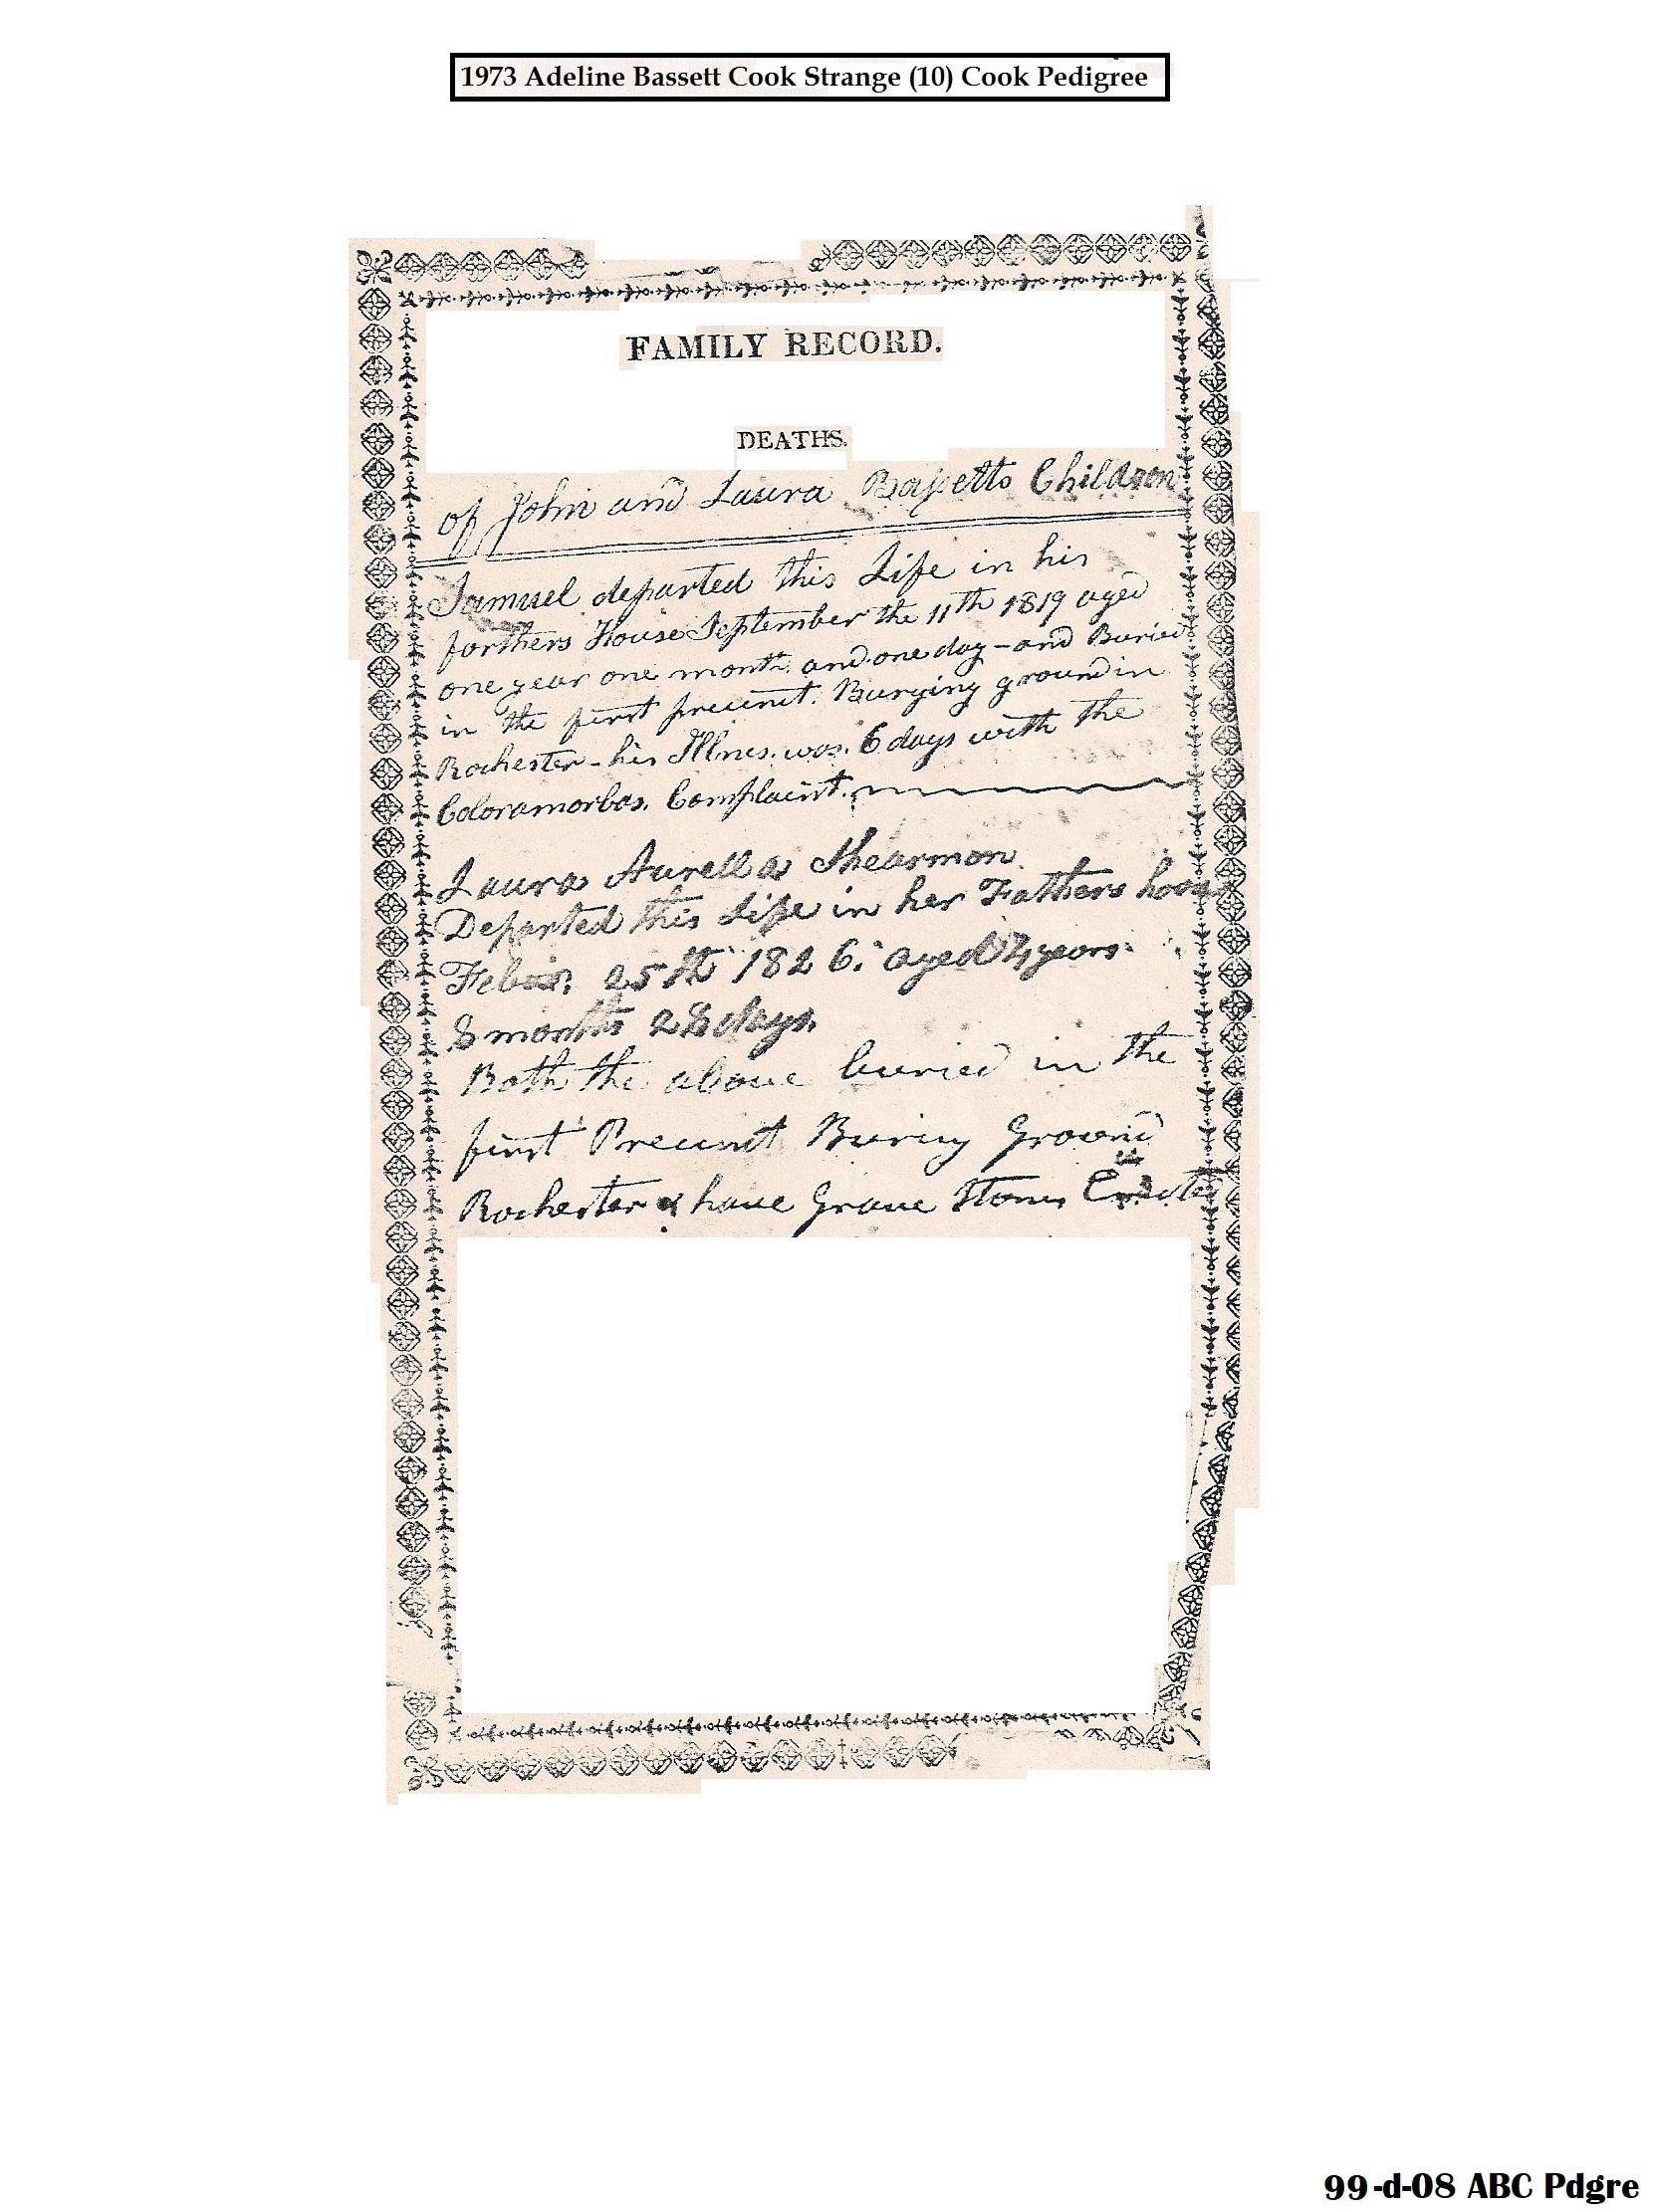 1973 Adeline Bassett Cook Strange (10) Cook Pedigree
FAMILY RECORD.
DEATHS.
of John and Laura Bassetts Children
Samuel departed this Life in his
farthers House September the 11th 1819 aged
one year one month and one day - and Buried
in the first precinct. Burying ground in
Rochester - his Illnes. was. 6 days with the
Coloramorbos. Complaint.
Laura Aurella Shearman
Departed this Life in her Fathers
25th 1826. aged years
8 months 28 days.
Both the above buried in the
first Precinct Buriing Ground
Rochester & have Grave Stones
99-d-08 ABC Pdgre